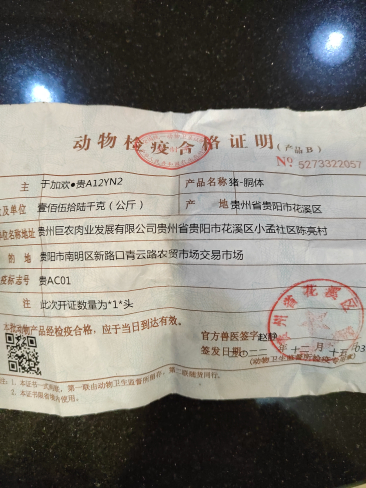 动物检疫合格证明(产品B)
No 5273322057
主 于加欢●贵A12YN2 产品名称 猪-胴体
及单位 壹佰伍拾陆千克(公斤) 产地 贵州省贵阳市花溪区
单位名称地址 贵州巨农肉业发展有限公司贵州省贵阳市花溪区小孟社区陈亮村
的地 贵阳市南明区新路口青云路农贸市场交易市场
标志号 贵AC01
注 此次开证数量为*1*头
本批动物产品经检疫合格,应于当日到达有效。
官方兽医签字
签发日期
注:1.本证书一式两联,第一联由动物卫生监督所留存,第二联随货同行。
2.本证书限省境内使用。